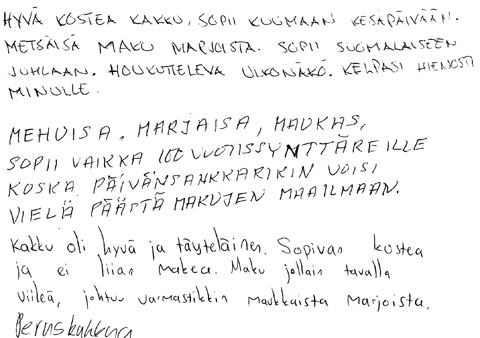 HYVÄ KOSTEA KAKKU, SOPII KUUMAAN KESÄPÄIVÄÄN.
METSÄISÄ MAKU MARJOISTA. SOPII SUOMALAISEEN
JUHLAAN. HOUKUTTELEVA ULKONÄKÖ. KELPASI HIENOSTI
MINULLE.
MEHUISA, MARJAISA, MAUKAS,
SOPII VAIKKA 100 VUOTISSYNTTÄREILLE
KOSKA PÄIVÄNSANKKARIKIN VOISI
VIELÄ PÄÄSTÄ MAKUJEN MAAILMAAN.
Kakku oli hyvä ja täyteläinen. Sopivan kostea
ja ei liian makea. Maku jollain tavalla
viileä, johtuu varmastikkin maukkaista marjoista.